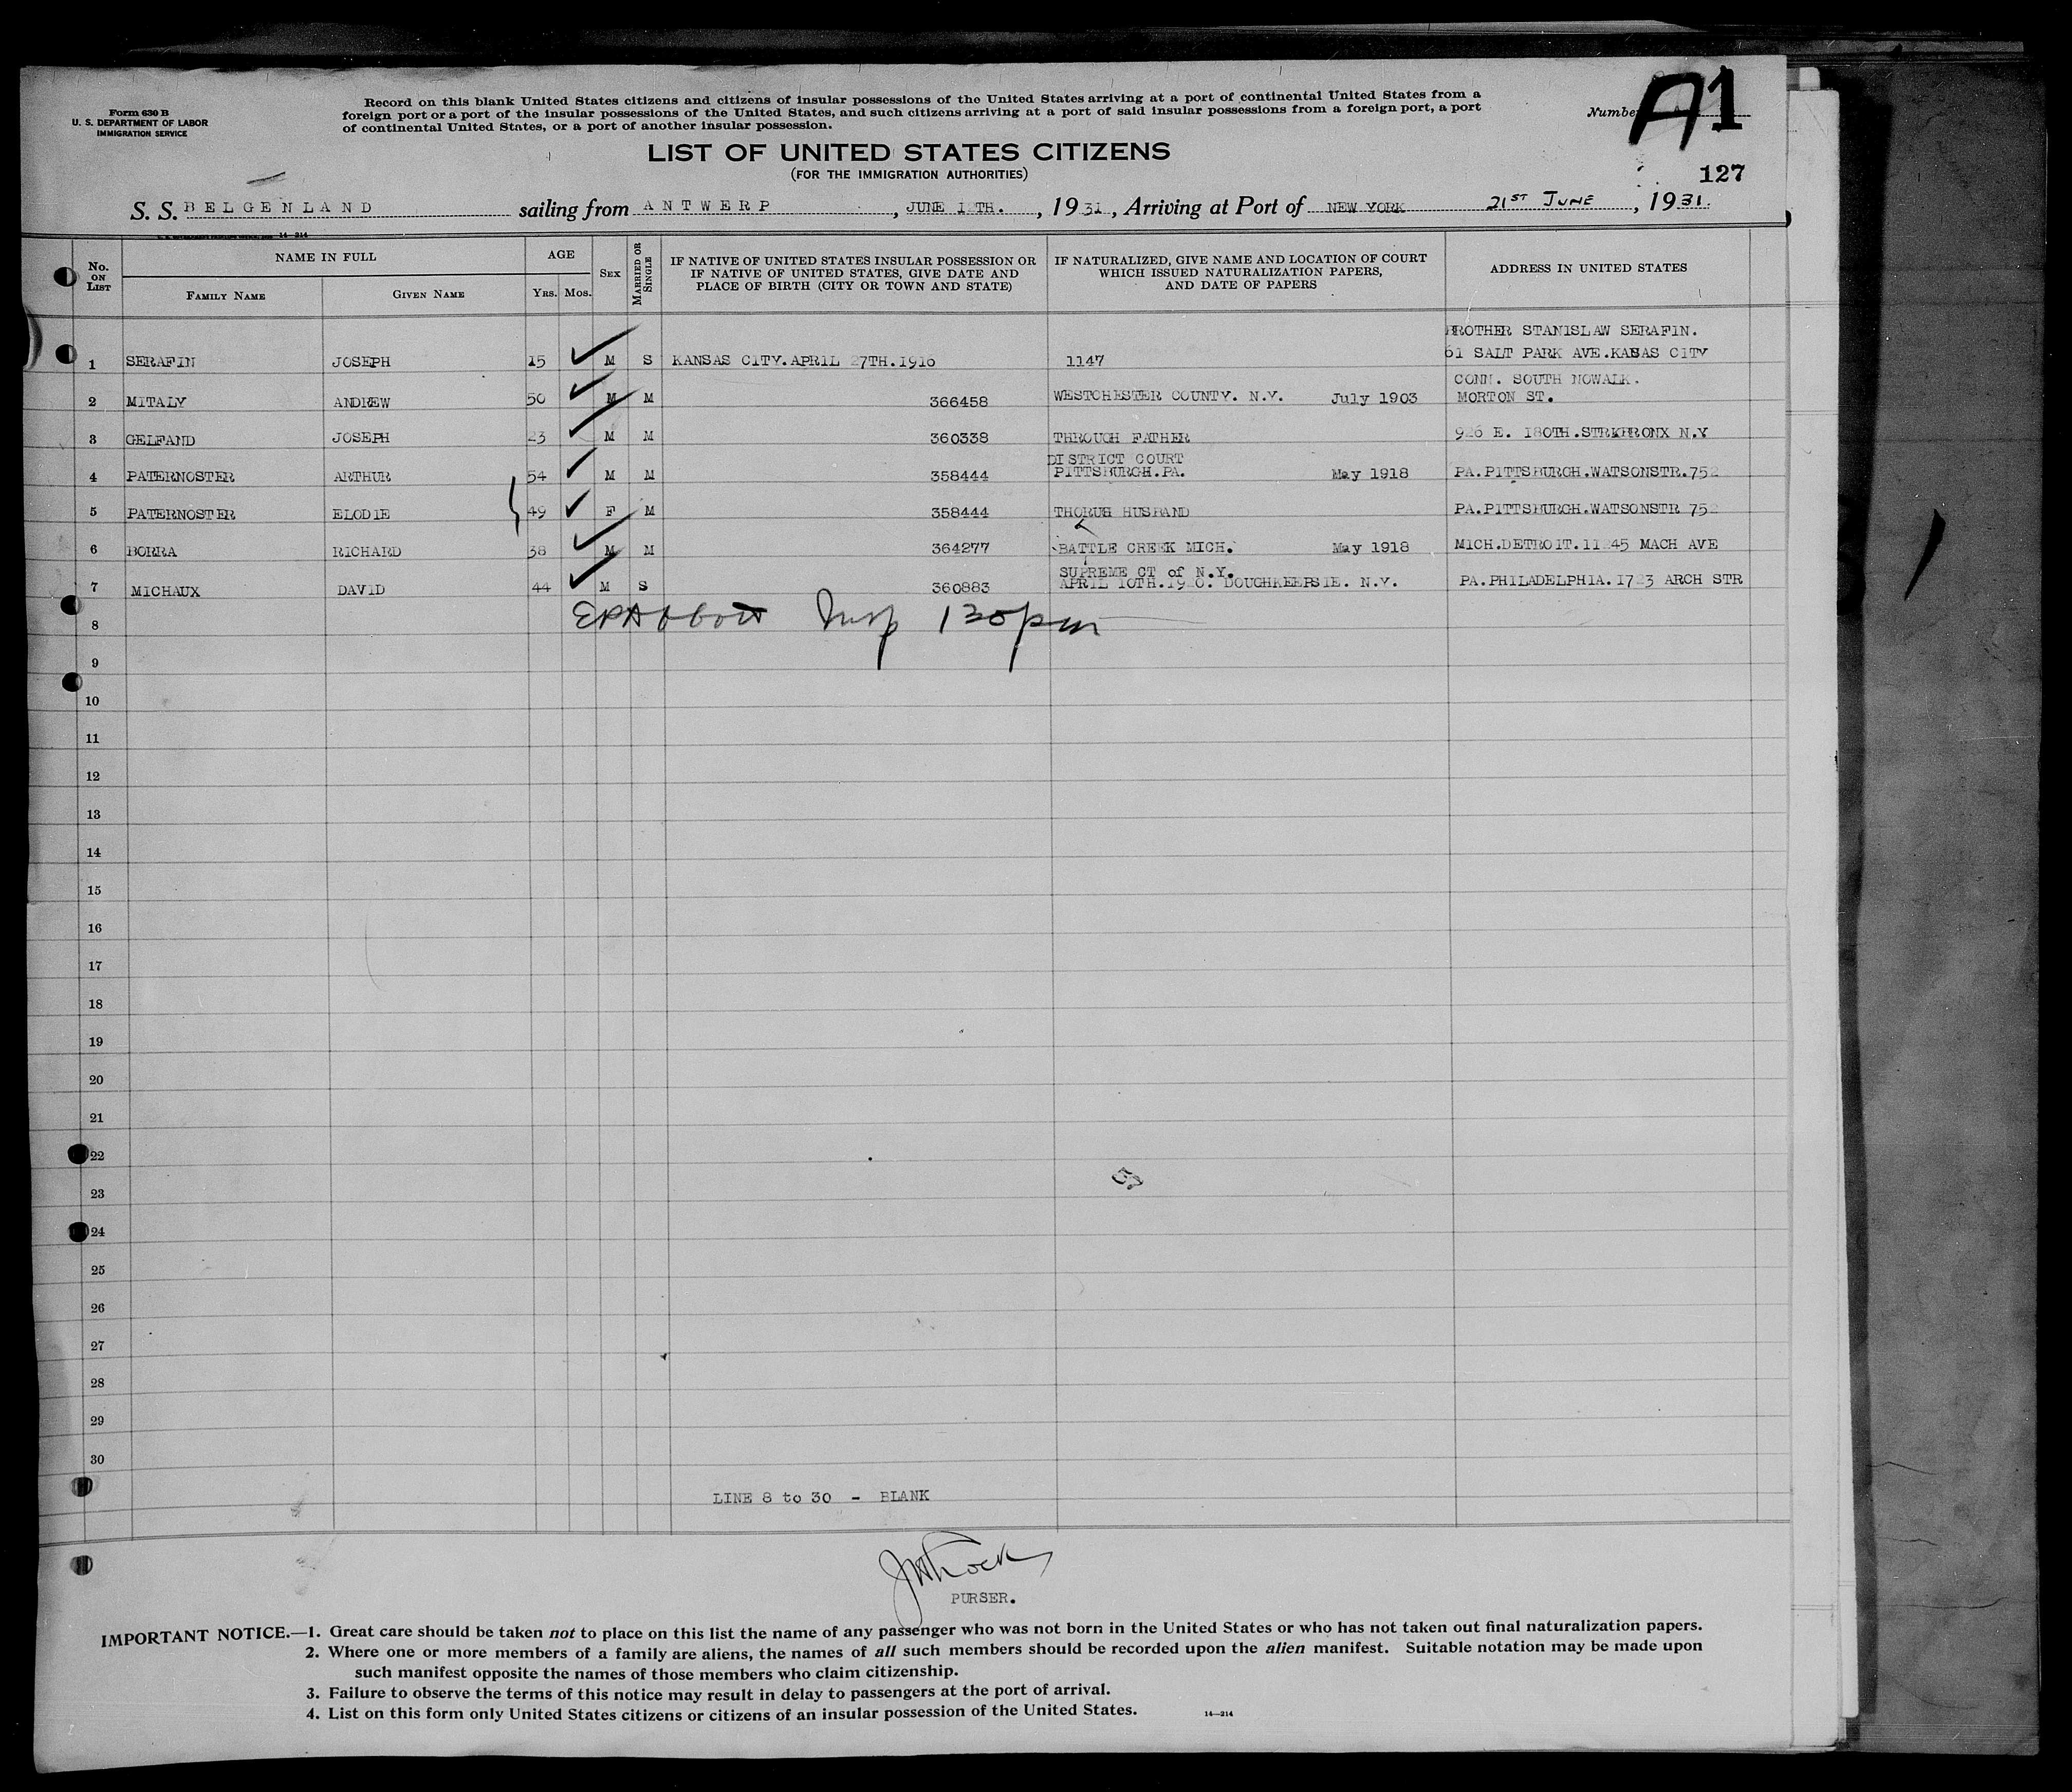 Form 630 B
U. S. DEPARTMENT OF LABOR
IMMIGRATION SERVICE
Record on this blank United States citizens and citizens of insular possessions of the United States arriving at a port of continental United States from a
foreign port or a port of the insular possessions of the United States, and such citizens arriving at a port of said insular possessions from a foreign port, a port
of continental United States, or a port of another insular possession.
Number A1
LIST OF UNITED STATES CITIZENS
(FOR THE IMMIGRATION AUTHORITIES)
127
S. S. BELGENLAND sailing from ANTWERP, JUNE 12TH., 1931, Arriving at Port of NEW YORK 21ST JUNE, 1931.
No. ON LIST
NAME IN FULL
FAMILY NAME GIVEN NAME
AGE
YRS. MOS.
SEX
MARRIED OR SINGLE
IF NATIVE OF UNITED STATES INSULAR POSSESSION OR
IF NATIVE OF UNITED STATES, GIVE DATE AND
PLACE OF BIRTH (CITY OR TOWN AND STATE)
IF NATURALIZED, GIVE NAME AND LOCATION OF COURT
WHICH ISSUED NATURALIZATION PAPERS,
AND DATE OF PAPERS
ADDRESS IN UNITED STATES
BROTHER STANISLAW SERAFIN.
1 SERAFIN JOSEPH 15 M S KANSAS CITY.APRIL 27TH.1916 1147 61 SALT PARK AVE.KASAS CITY
CONN. SOUTH NOWALK.
2 MITALY ANDREW 50 M M 366458 WESTCHESTER COUNTY. N.Y. July 1903 MORTON ST.
3 GELFAND JOSEPH 23 M M 360338 THROUGH FATHER 926 E. 180TH.STR BRONX N.Y
DISTRICT COURT
4 PATERNOSTER ARTHUR 54 M M 358444 PITTSBURGH.PA. May 1918 PA.PITTSBURGH.WATSONSTR.752
5 PATERNOSTER ELODIE 49 F M 358444 THORUG HUSBAND PA.PITTSBURGH.WATSONSTR 752
6 BORRA RICHARD 38 M M 364277 BATTLE CREEK MICH. May 1918 MICH.DETROIT.11245 MACH AVE
SUPREME CT of N.Y.
7 MICHAUX DAVID 44 M S 360883 APRIL 10TH.1920. DOUGHKEEPSIE. N.Y. PA.PHILADELPHIA.1723 ARCH STR
8 Insp 130pm
9
10
11
12
13
14
15
16
17
18
19
20
21
22
23
24
25
26
27
28
29
30
LINE 8 to 30 - BLANK
PURSER.
IMPORTANT NOTICE.—1. Great care should be taken not to place on this list the name of any passenger who was not born in the United States or who has not taken out final naturalization papers.
2. Where one or more members of a family are aliens, the names of all such members should be recorded upon the alien manifest. Suitable notation may be made upon
such manifest opposite the names of those members who claim citizenship.
3. Failure to observe the terms of this notice may result in delay to passengers at the port of arrival.
4. List on this form only United States citizens or citizens of an insular possession of the United States.
14—214